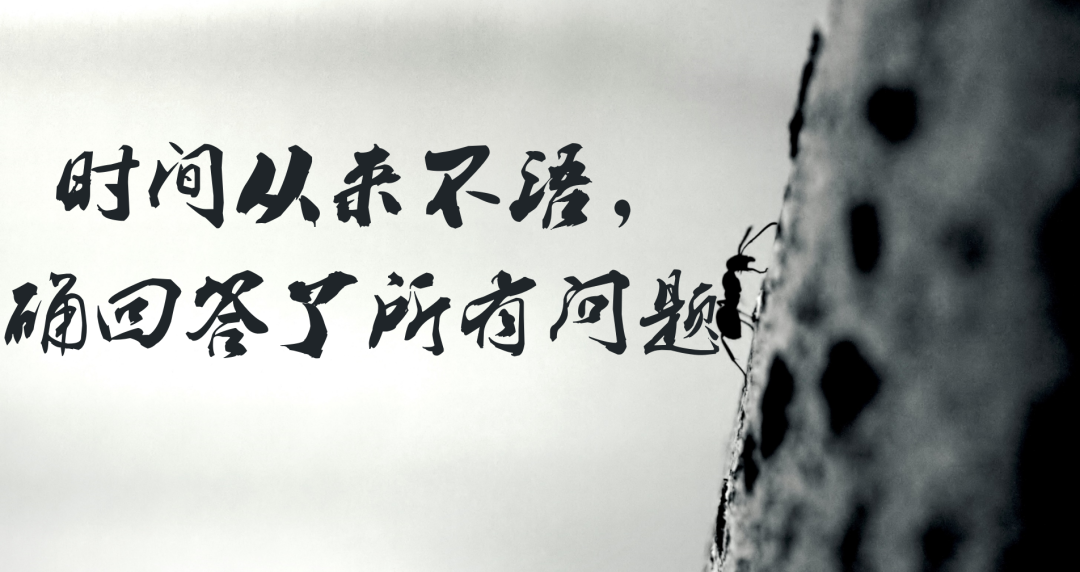 时间从来不语，
确回答了所有问题